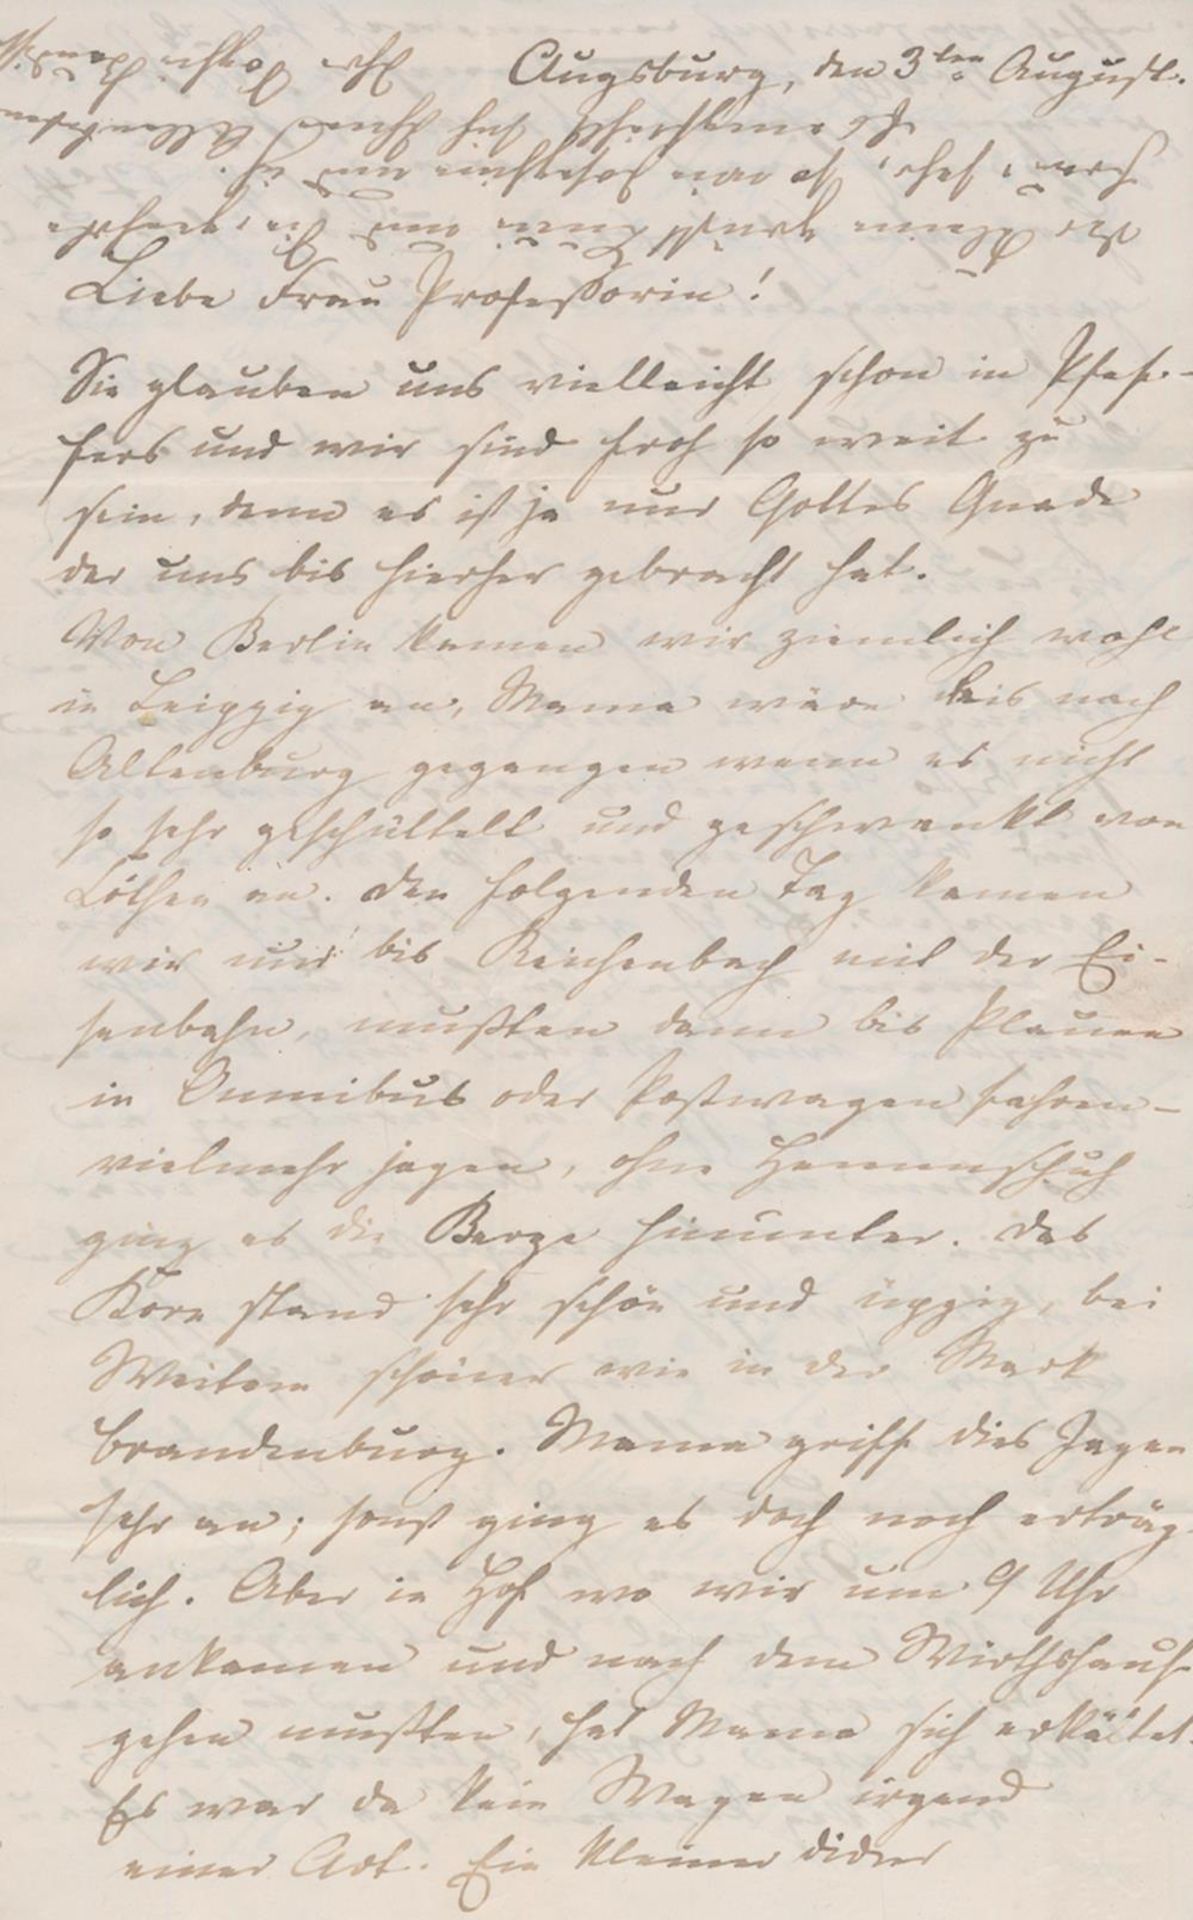 Augsburg, den 3ten August.
Liebe Frau Professorin!
Sie glauben uns vielleicht schon in Pfef-
fers und wir sind froh so weit zu
sein, denn es ist ja nur Gottes Gnade
der uns bis hierher gebracht hat.
Von Berlin kamen wir ziemlich wohl
in Leipzig an, Mama wäre bis nach
Altenburg gegangen wenn es nicht
so sehr geschüttelt und geschwankt von
Cöthen an. Den folgenden Tag kamen
wir nur bis Reichenbach mit der Ei-
senbahn, mußten dann bis Plauen
in Omnibus oder Postwagen fahren-
vielmehr jagen, ohne Hemmschuh
ging es die Berge hinunter. Das
Korn stand sehr schön und üppig, bei
Weitem schöner wie in der Mark
Brandenburg. Mama griff dies Jagen
sehr an; sonst ging es doch noch erträg-
lich. Aber in Hof wo wir um 9 Uhr
ankamen und nach dem Wirthshaus
gehen mußten, hat Mama sich erkältet.
Es war da kein Wagen irgend
einer Art. Ein kleiner dicker